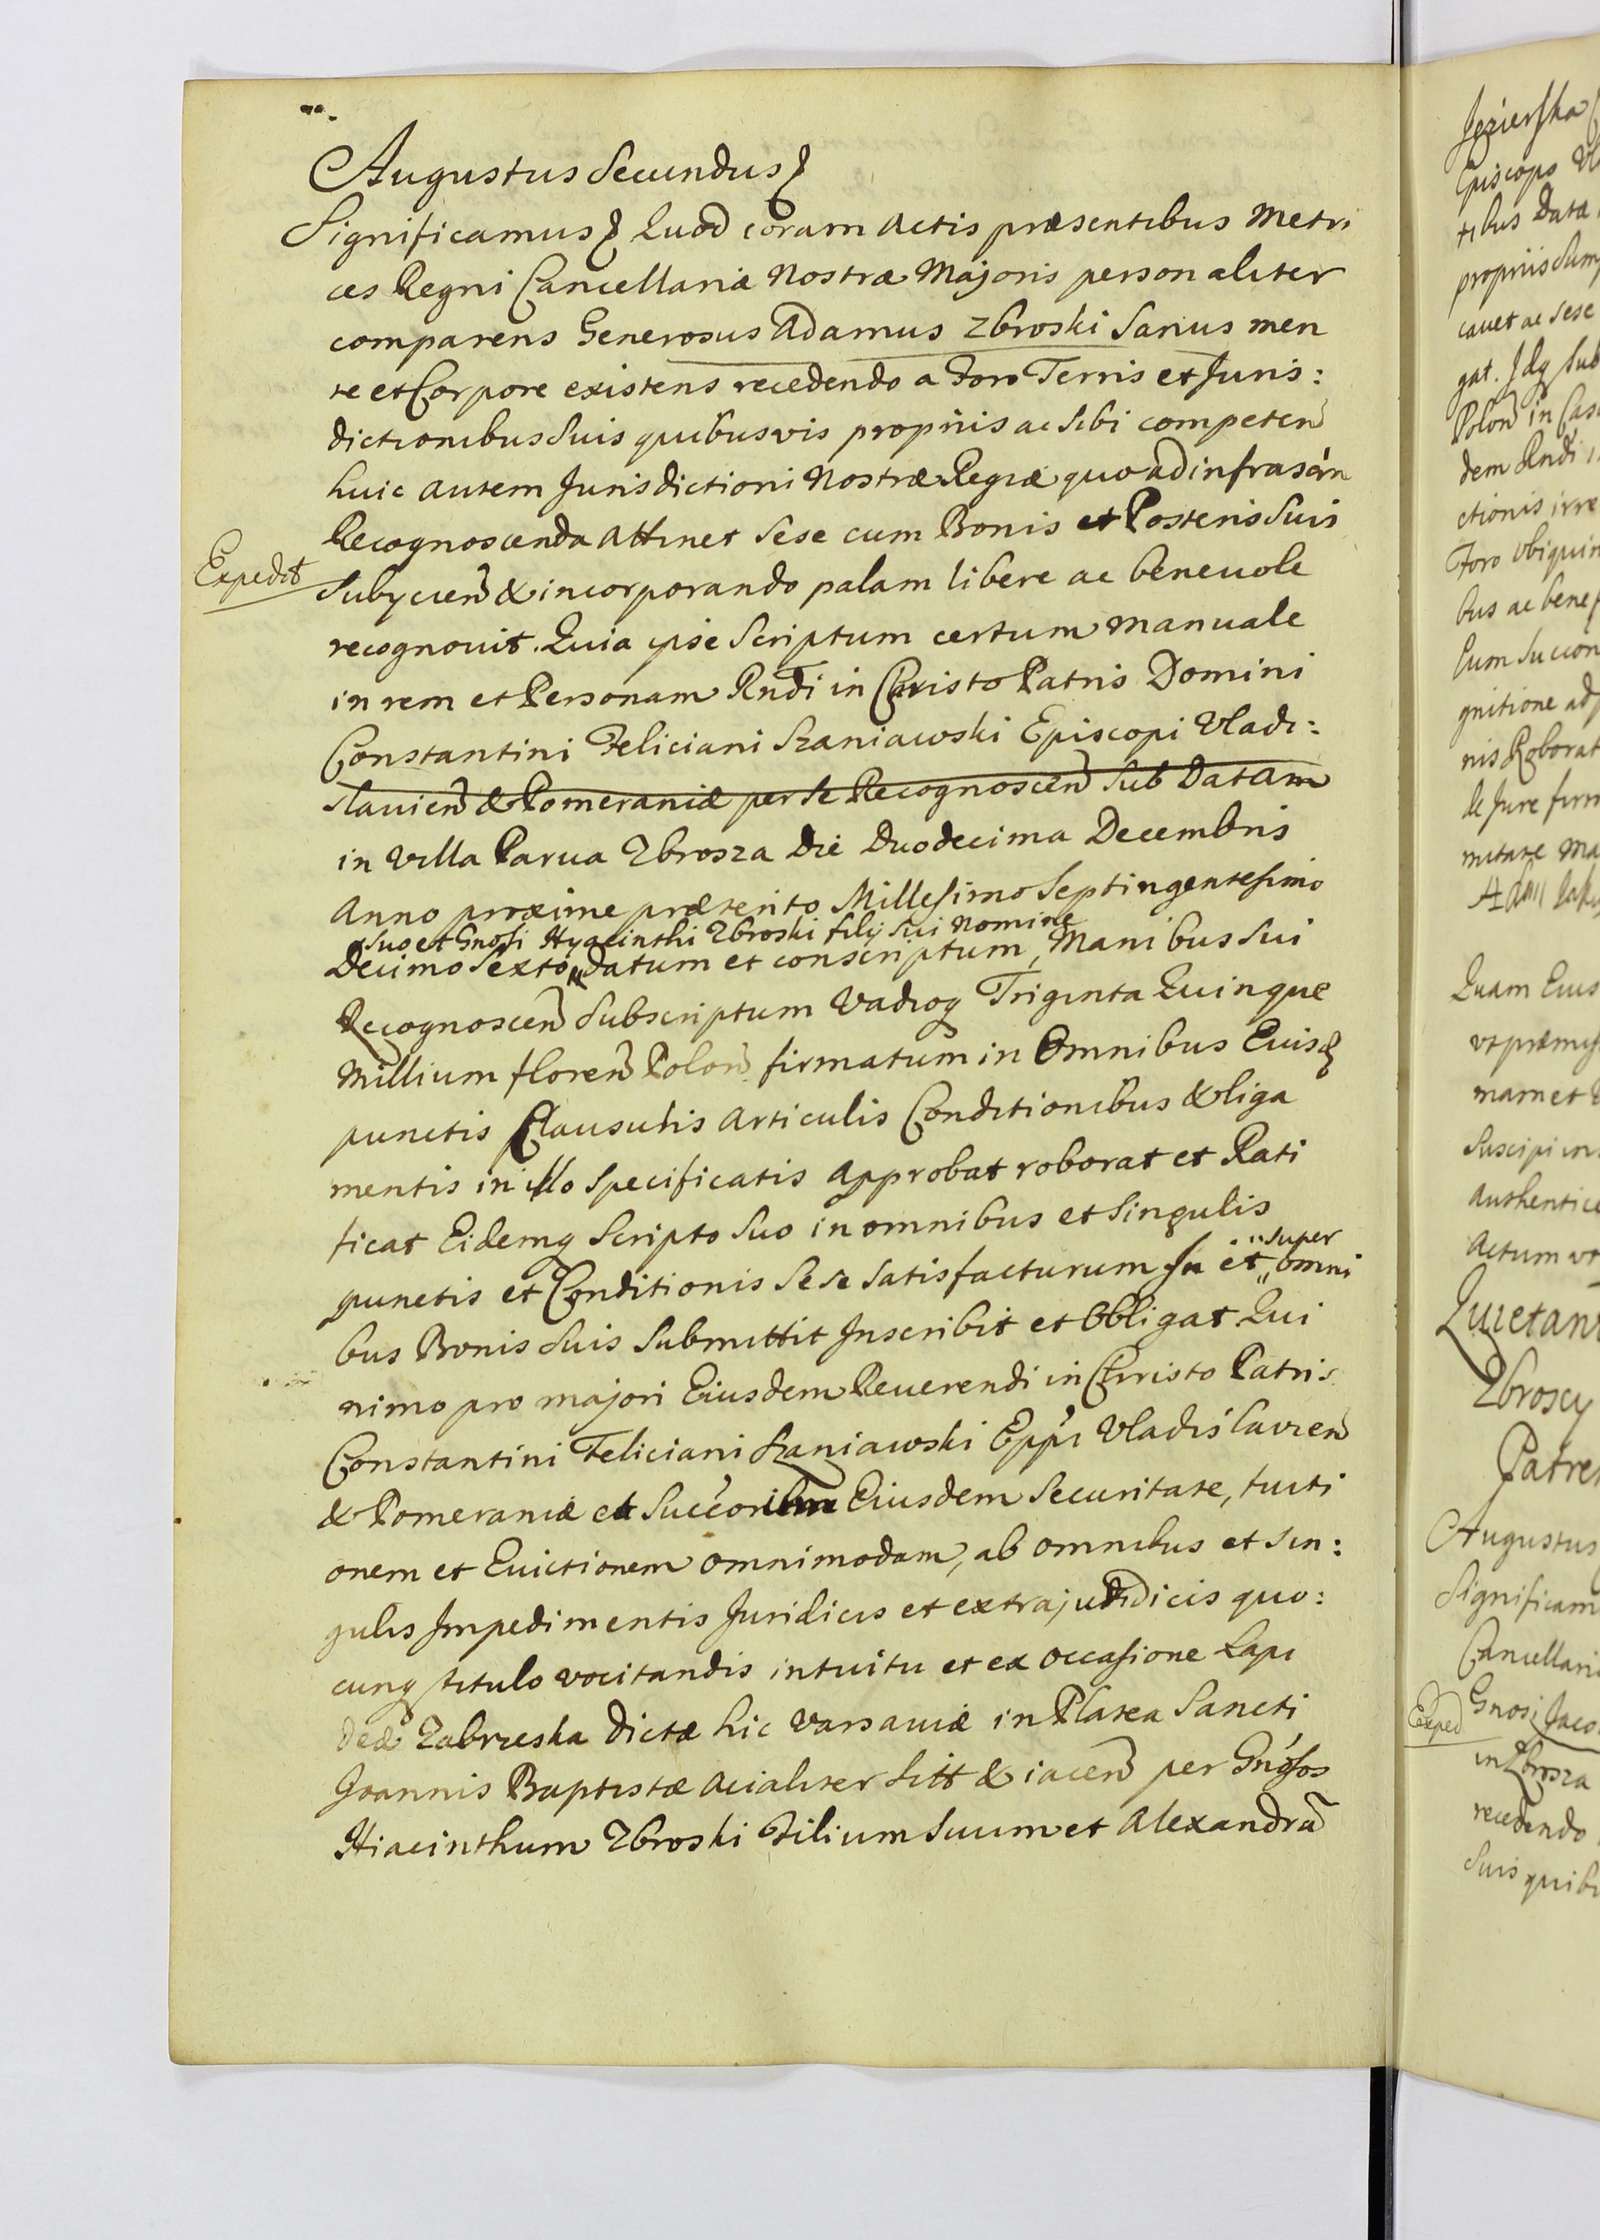 Augustus Secundus
Significamus Quod coram Actis præsentibus Metri
ces Regni Cancellariæ Nostræ Majoris personaliter
comparens Generosus Adamus Zbroski Sanus men
te et Corpore existens recedendo a Foro Terris et Juris:
dictionibus Suis quibusvis proprijs ac Sibi competen
huic autem Jurisdictioni Nostræ Regiæ quoad infrascrin
Recognoscenda attinet Sese cum Bonis et Posteris Suis
Expedit
Subyciens & incorporando palam libere ac beneuole
recognouit. Quia ipse Scriptum certum manuale
in rem et Personam Rndi in Christo Patris Domini
Constantini Feliciani Szaniawski Episcopi Vladi:
slauien & Pomeraniæ per se Recognoscen Sub Datam
in Villa Parua Zbrosza Die Duodecima Decembris
Anno proxime præterito Millesimo Septingentesimo
Suo et Gnosi Hyacinthi Zbroski filij Sui Nomine
Decimo Sexto datum et conscriptum, Manibus Sui
Recognoscen Subscriptum Vadioq Triginta Quinque
Millium floren Polon firmatum in Omnibus Euisq
punctis Clausulis Articulis Conditionibus & liga
mentis in illo Specificatis Approbat roborat et Rati
ficat Eidemq Scripto Suo in omnibus et Singulis
super
punctis et Conditionis Sese Satisfacturum et omni
bus Bonis Suis Submittit Inscribit et Obligat Qui
nimo pro majori Eiusdem Reuerendi in Christo Patris
Constantini Feliciani Szaniawski Eppi Vladislavien
& Pomeraniæ et Succorum Eiusdem Securitate, tuiti
onem et Euictionem omnimodam, ab omnibus et Sin:
gulis Impedimentis Juridicis et extrajudicis quo:
cunq titulo vocitandis intuitu et ex occasione Lapi
deæ Zabrzeska dictæ hic Varsauiæ in Platea Sancti
Joannis Baptistæ Acialiter Sitt & iacen per Gnosos
Hiacinthum Zbroski Filium Suum et Alexandra
Jezierska
Episcopo Vl
tibus Data
proprijs Sum
cauet ac sese
gat. Idq sub
Polon in Cas
dem Rndi i
ctionis irre
Foro vbiquin
bus ac benef
Cum Succon
gnitione ad
nis Roborat
de Jure firm
mitate Ma
Quam Eius
vt præmis
mam et
Suscipi in
Authentice
Actum vt
Quietan
Zbroscy
Patre
Augustus
Significam
Cancellari
Exped
Gnosi Jaco
in Zbrosza
recedendo
Suis quibu